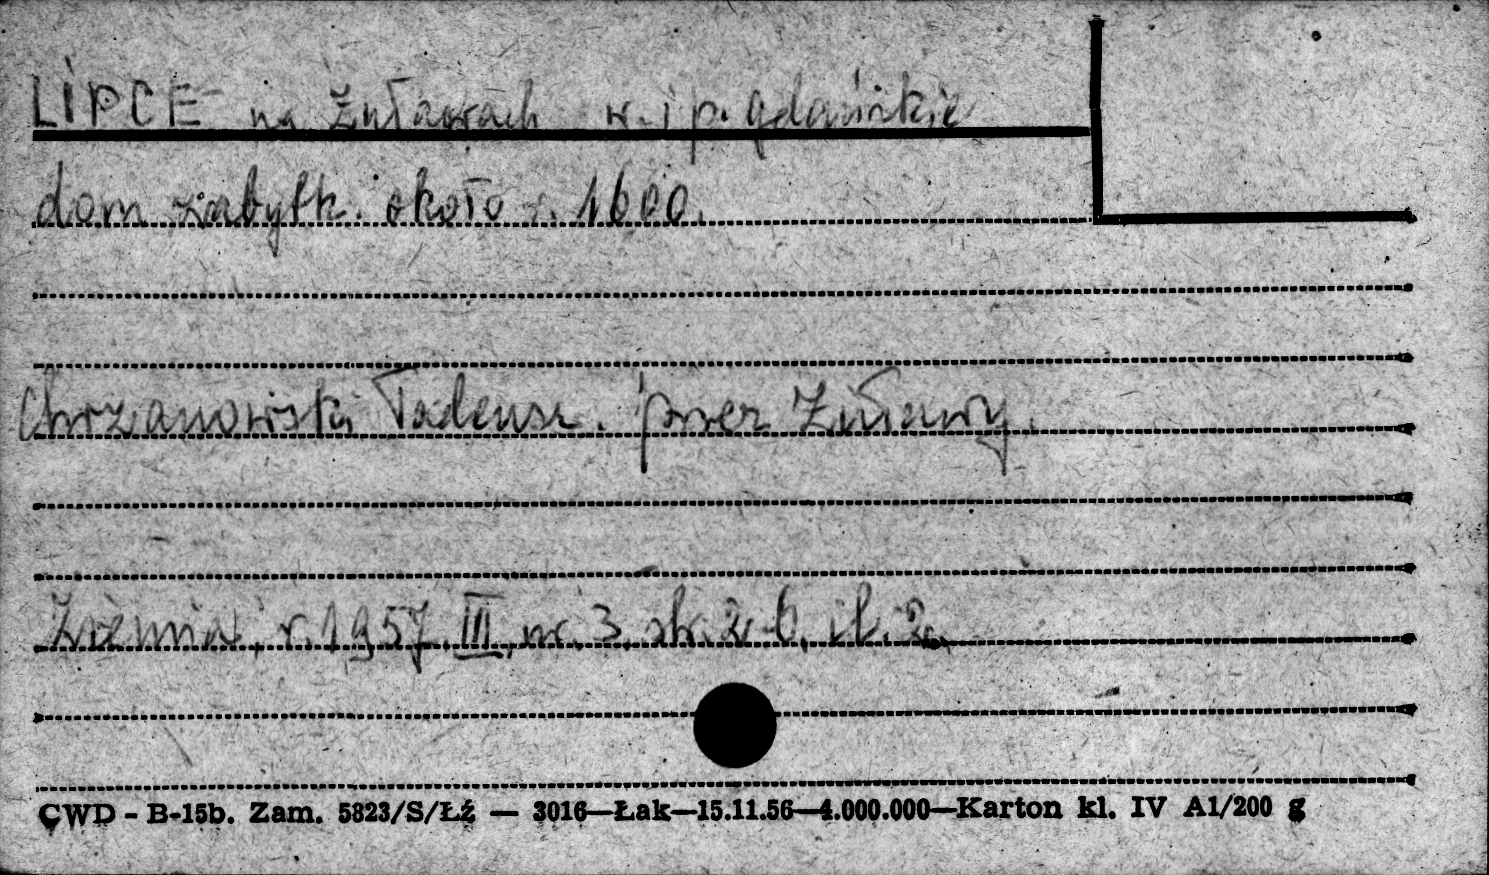 LIPCE na Żuławach w. i p. gdańskie
dom zabytk. około r. 1600.
Chrzanowski Tadeusz. przez Żuławy.
Ziemia, r. 1957. III, nr. 3, str. 2-6, il. 2.
CWD - B-15b. Zam. 5823/S/Łź — 3016—Łak—15.11.56—4.000.000—Karton kl. IV A1/200 g